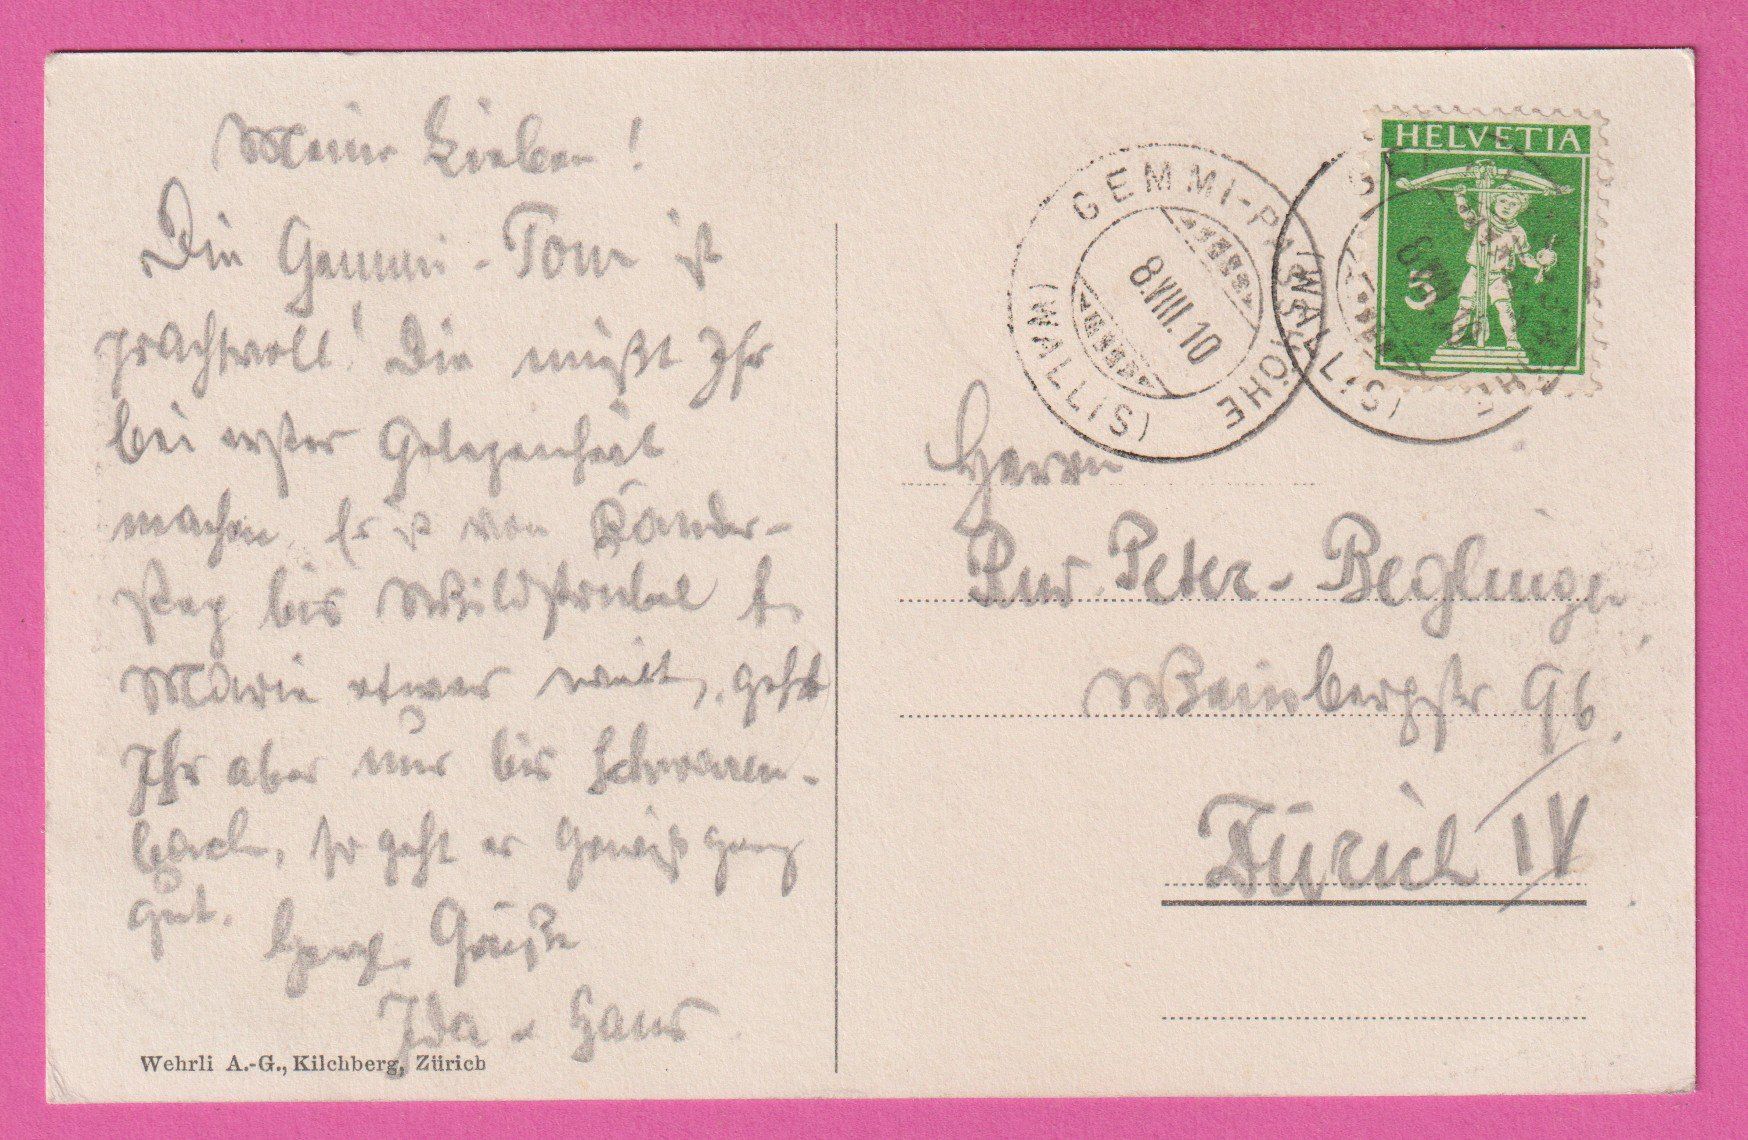 Meine Lieben!
Die Gemmi-Tour ist
prachtvoll! Die müßt Ihr
bei erster Gelegenheit
machen. Er ist von Kander-
steg bis Wildstrubel f.
Marie etwas weit, geht
Ihr aber nur bis Schwaren-
bach, so geht es gewiß ganz
gut.
Herzl. Grüße
Ida & Hans
Wehrli A.-G., Kilchberg, Zürich
HELVETIA
5
GEMMI-PASSHÖHE
(WALLIS)
8.VIII.10
GEMMI-PASSHÖHE
(WALLIS)
8.VIII.10
Herrn
Peter-Beglinger
Weinbergstr 96.
Zürich IV